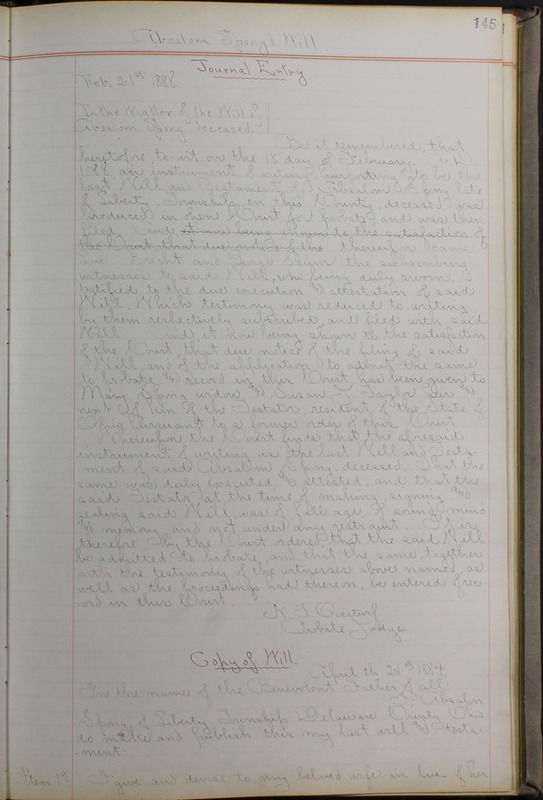 145
Absalom Spong's Will
Journal Entry
Feb. 21st 1888
In the Matter of the Will of
Absalom Spong deceased.
Be it remembered, that
heretofore, to wit: on the 18 day of February A.D.
1888 an instrument of writing, purporting to be the
last Will and Testament of Absalom Spong late
of Liberty Township in this County, deceased was
produced in open Court for probate and was then
filed. And it now being shown to the satisfaction of
the Court, that due notice of the thereupon came
and George the subscribing
witnesses to said Will, who being duly sworn,
testified to the due execution & attestation of said
Will. Which testimony was reduced to writing,
by them respectively subscribed, and filed with said
Will. And it now being shown to the satisfaction
of the Court, that due notice of the filing of said
Will, and of the application to admit the same
to probate & record in this Court, has been given to
Mary Spong widow & Susan Taylor &
next of kin of the Testator, resident of the State of
Ohio pursuant to a former order of this Court
Thereupon the Court finds, that the aforesaid
instrument of writing is the last Will and Testa-
ment of said Absalom Spong, deceased. That the
same was duly executed & attested, and that the
said Testator at the time of making, signing &
sealing said Will, was of full age, of sound mind
& memory, and not under any restraint. It is
therefore by the Court ordered that the said Will
be admitted to probate, and that the same, together
with the testimony of the witnesses above named, as
well as the proceedings had thereon, be entered of rec-
ord in this Court.
N. F. Overturf
Probate Judge
Copy of Will.
April th 21st 1884.
In the name of the Benevolent Father of all:
I, Absalom
Spong of Liberty Township Delaware County Ohio
do make and publish this my last will & testa-
ment.
Item 1st I give and devise to my beloved wife in lieu of her